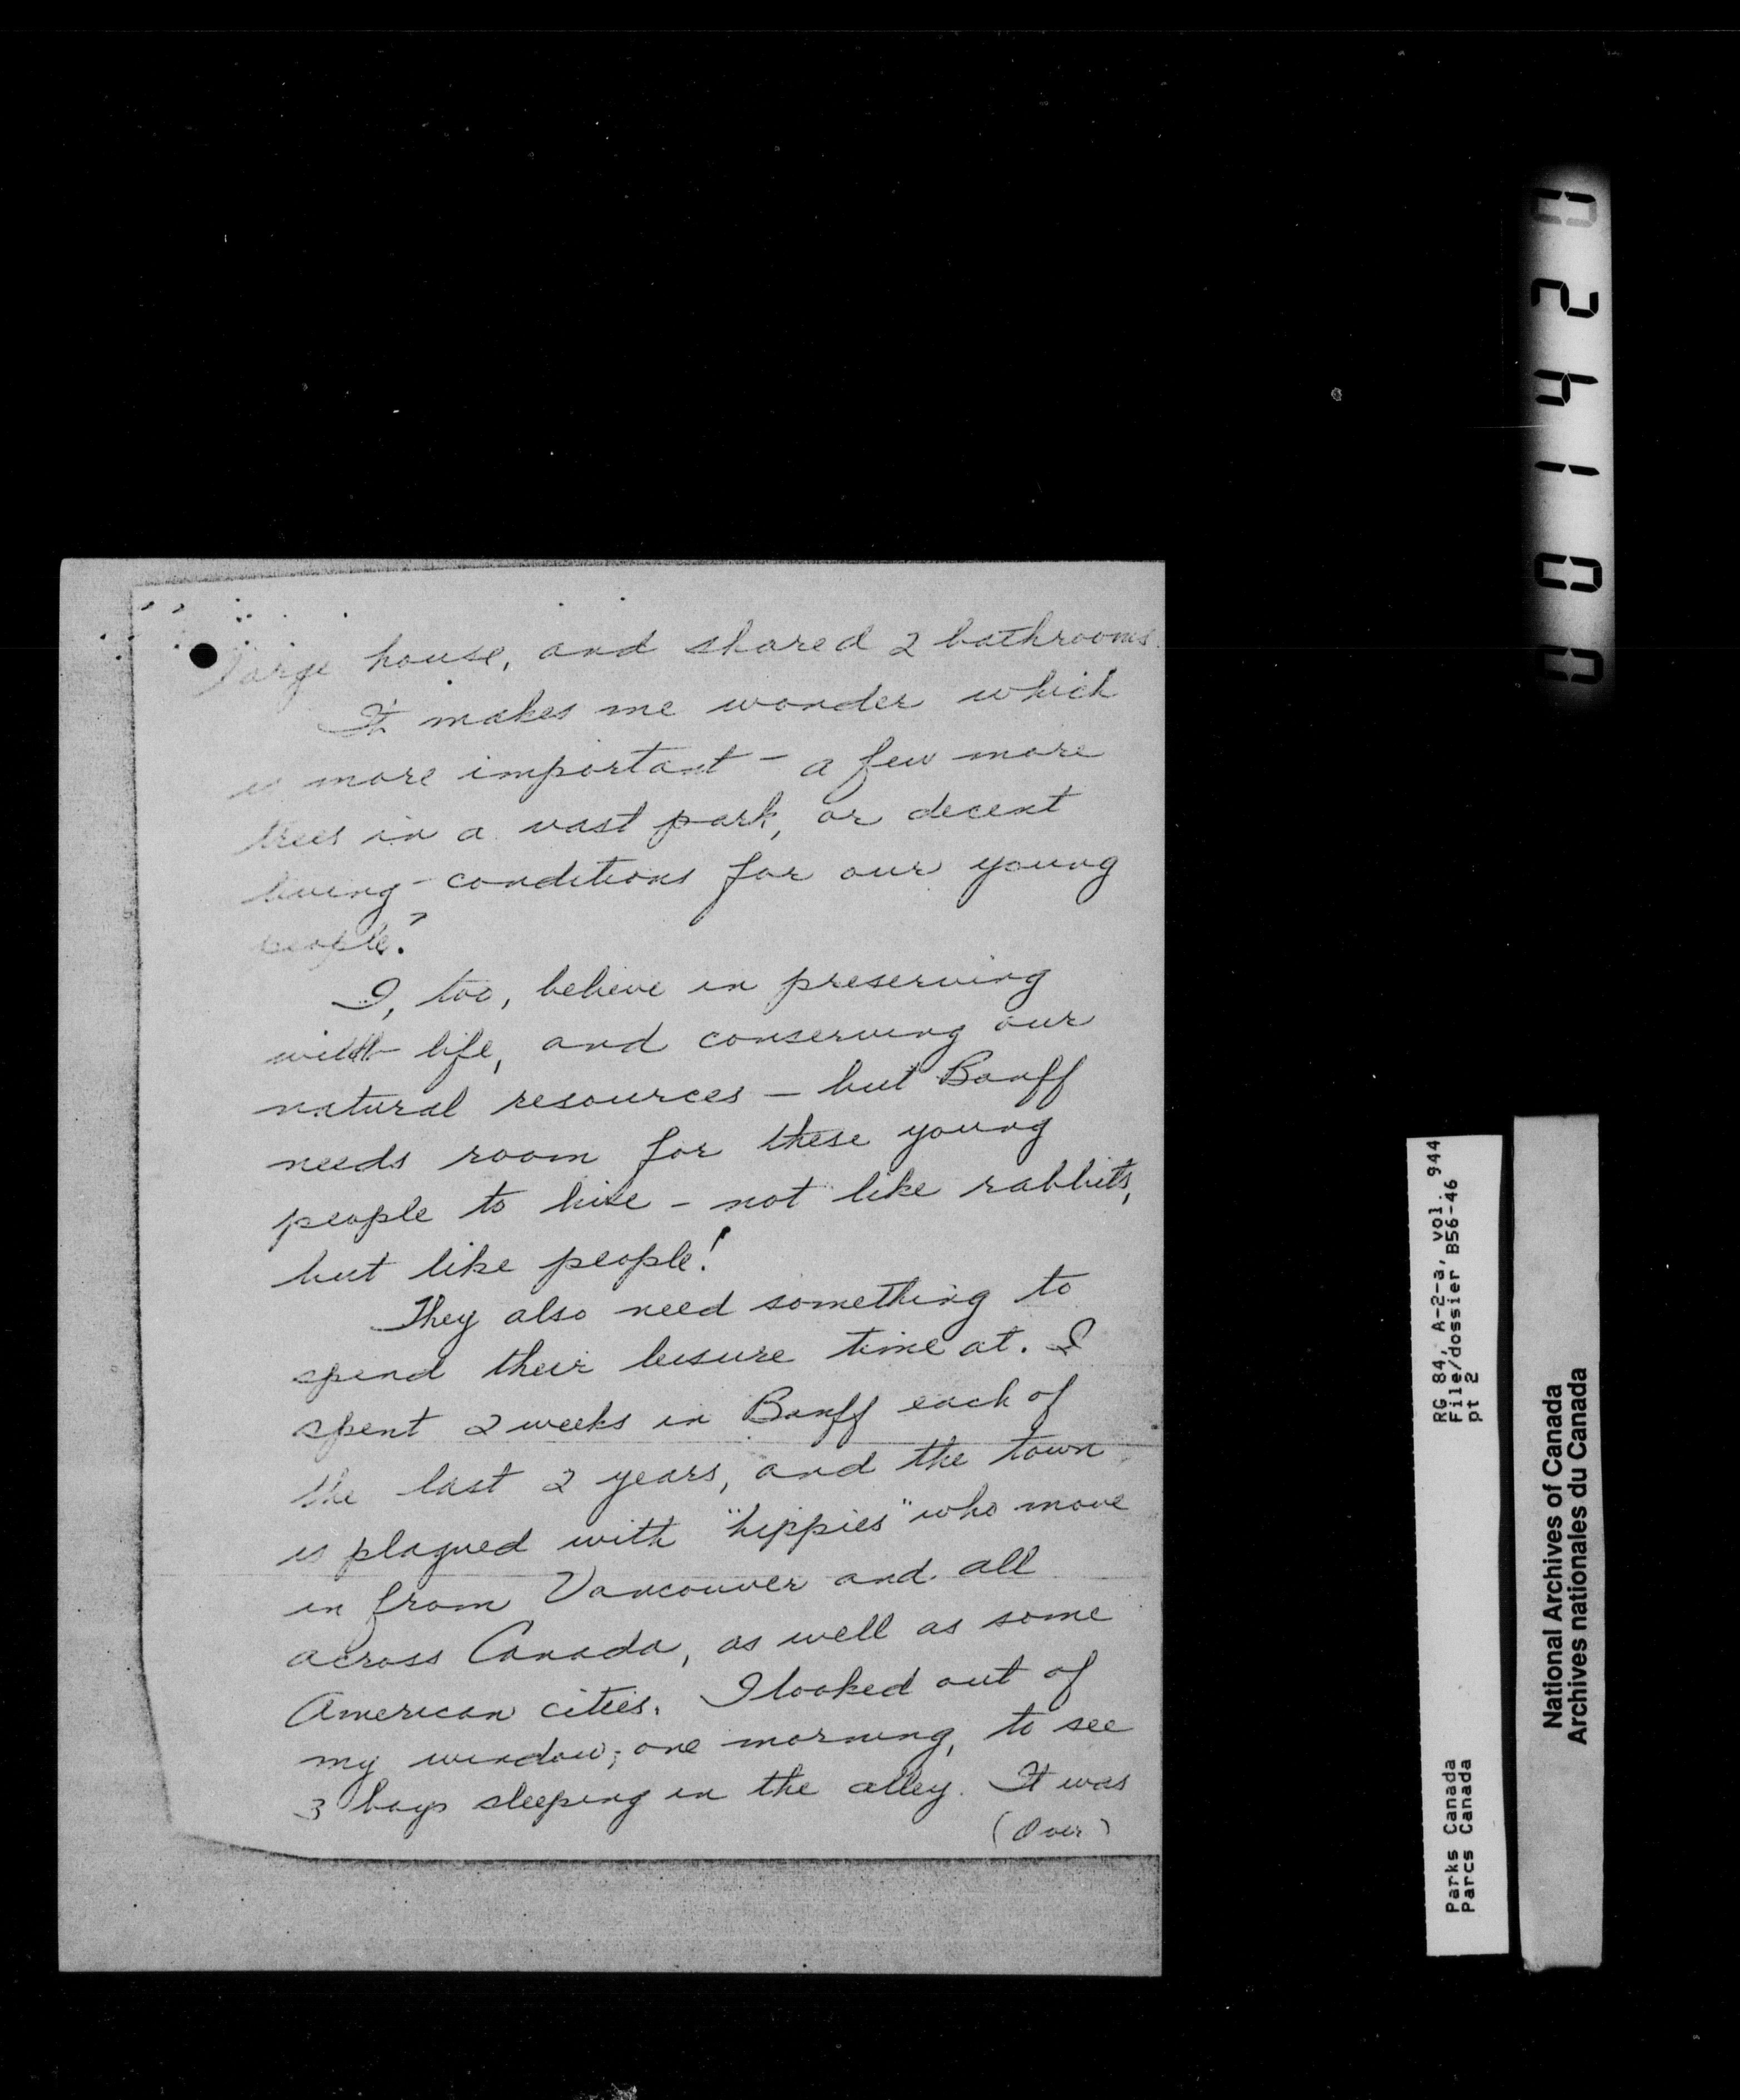 large house, and shared 2 bathrooms.
It makes me wonder which
is more important - a few more
trees in a vast park, or decent
living-conditions for our young
people?
I, too, believe in preserving
wild-life, and conserving our
natural resources - but Banff
needs room for these young
people to live - not like rabbits,
but like people!
They also need something to
spend their leisure time at. I
spent 2 weeks in Banff each of
the last 2 years, and the town
is plagued with "hippies" who move
in from Vancouver and all
across Canada, as well as some
American cities. I looked out of
my window, one morning, to see
3 boys sleeping in the alley. It was
(Over)
001420
RG 84, A-2-a, vol. 944
File/dossier B56-46
pt 2
Parks Canada
Parcs Canada
National Archives of Canada
Archives nationales du Canada